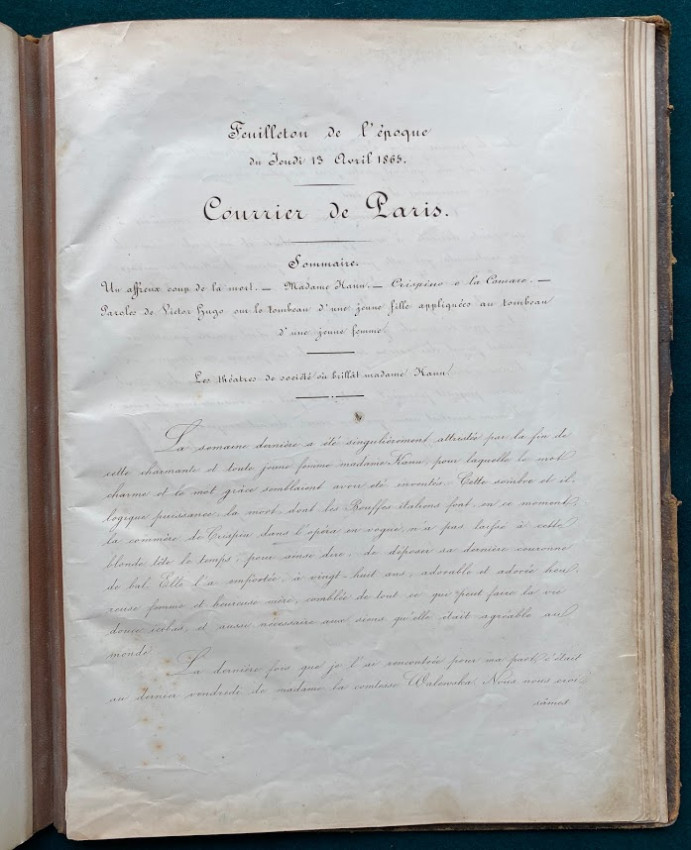 Feuilleton de l'époque
du Jeudi 13 Avril 1865.
Courrier de Paris.
Sommaire.
Un affreux coup de la mort. — Madame Kann. — Crispino e la Comare. —
Paroles de Victor Hugo sur le tombeau d'une jeune fille appliquées au tombeau
d'une jeune femme.
Les théatres de société où brillât madame Kann.
La semaine dernière a été singulièrement attristée par la fin de
cette charmante et toute jeune femme madame Kann, pour laquelle le mot
charme et le mot grâce semblaient avoir été inventés. Cette sombre et il-
logique puissance, la mort, dont les Bouffes italiens font en ce moment,
la commère de Crispin dans l'opéra en vogue, n'a pas laissé à cette
blonde tête le temps, pour ainsi dire, de déposer sa dernière couronne
de bal. Elle l'a emportée, à vingt-huit ans, adorable et adorée heu-
reuse femme et heureuse mère, comblée de tout ce qui peut faire la vie
douce ici bas, et aussi nécessaire aux siens qu'elle était agréable au
monde.
La dernière fois que je l'ai rencontrée pour ma part, c'était
au dernier vendredi de madame la comtesse Walewska. Nous nous croi-
sâmes